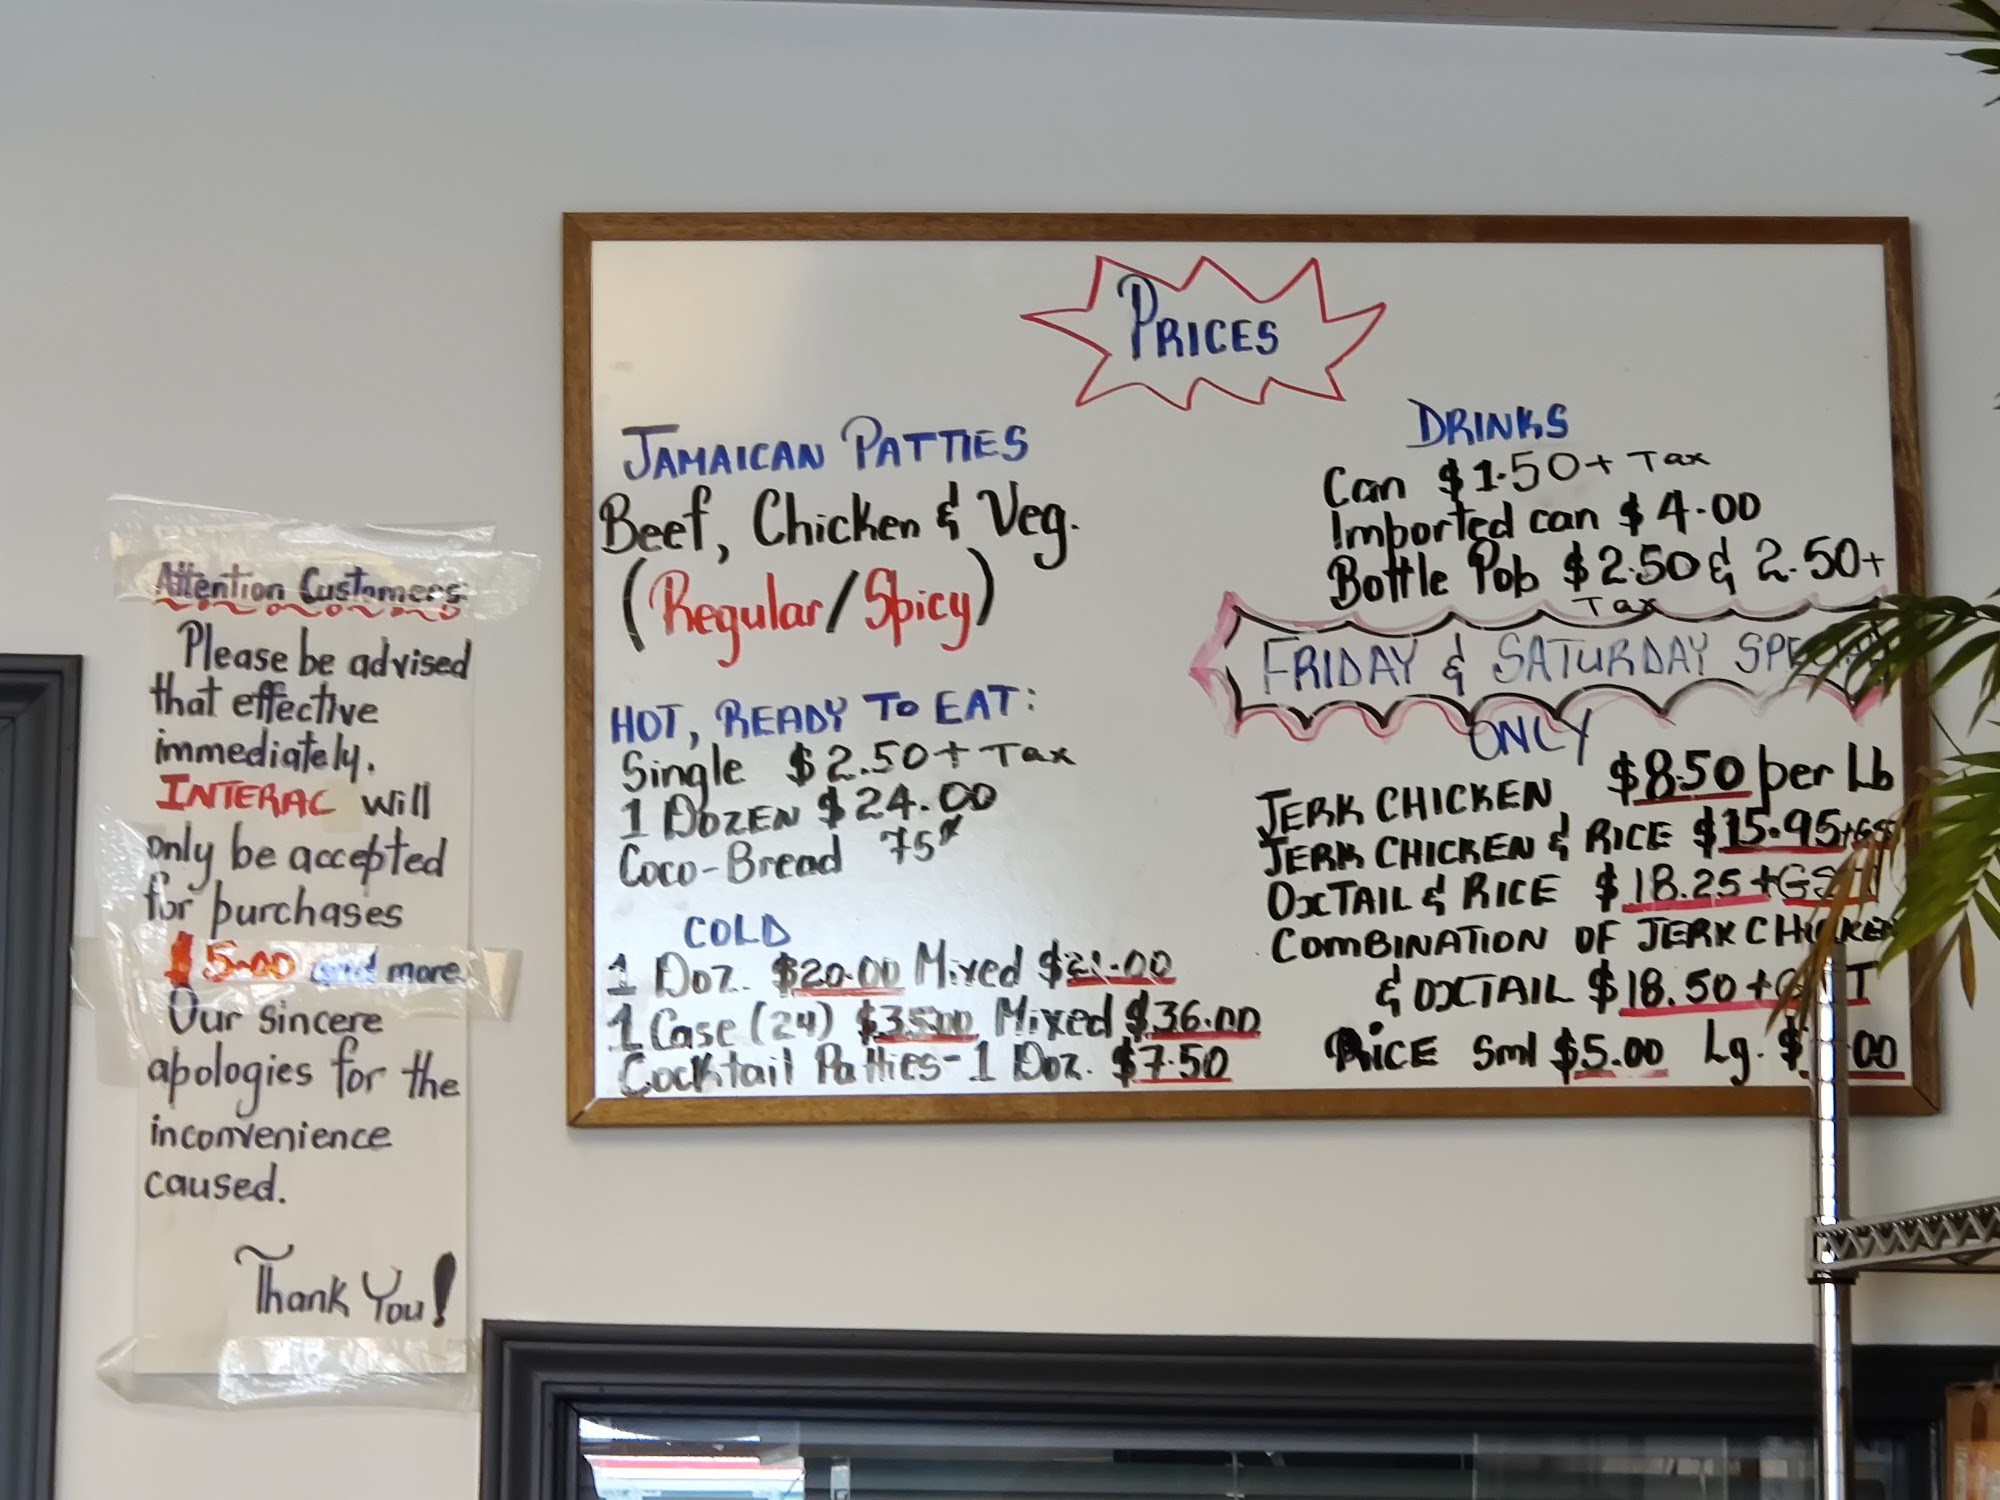 Attention Customers:
Please be advised
that effective
immediately.
INTERAC will
only be accepted
for purchases
$5.00 and more.
Our sincere
apologies for the
inconvenience
caused.
Thank You!
PRICES
JAMAICAN PATTIES
Beef, Chicken & Veg.
(Regular/Spicy)
HOT, READY TO EAT:
Single $2.50 + Tax
1 DOZEN $24.00
Coco-Bread 75¢
COLD
1 Doz. $20.00 Mixed $21.00
1 Case (24) $35.00 Mixed $36.00
Cocktail Patties - 1 Doz. $7.50
DRINKS
Can $1.50 + Tax
Imported can $4.00
Bottle Pop $2.50 & 2.50+
Tax
FRIDAY & SATURDAY
ONLY
JERK CHICKEN $8.50 per Lb
JERK CHICKEN & RICE $15.95
OXTAIL & RICE $18.25 +
COMBINATION OF JERK CHICKEN
& OXTAIL $18.50 +
RICE Sml $5.00 Lg.